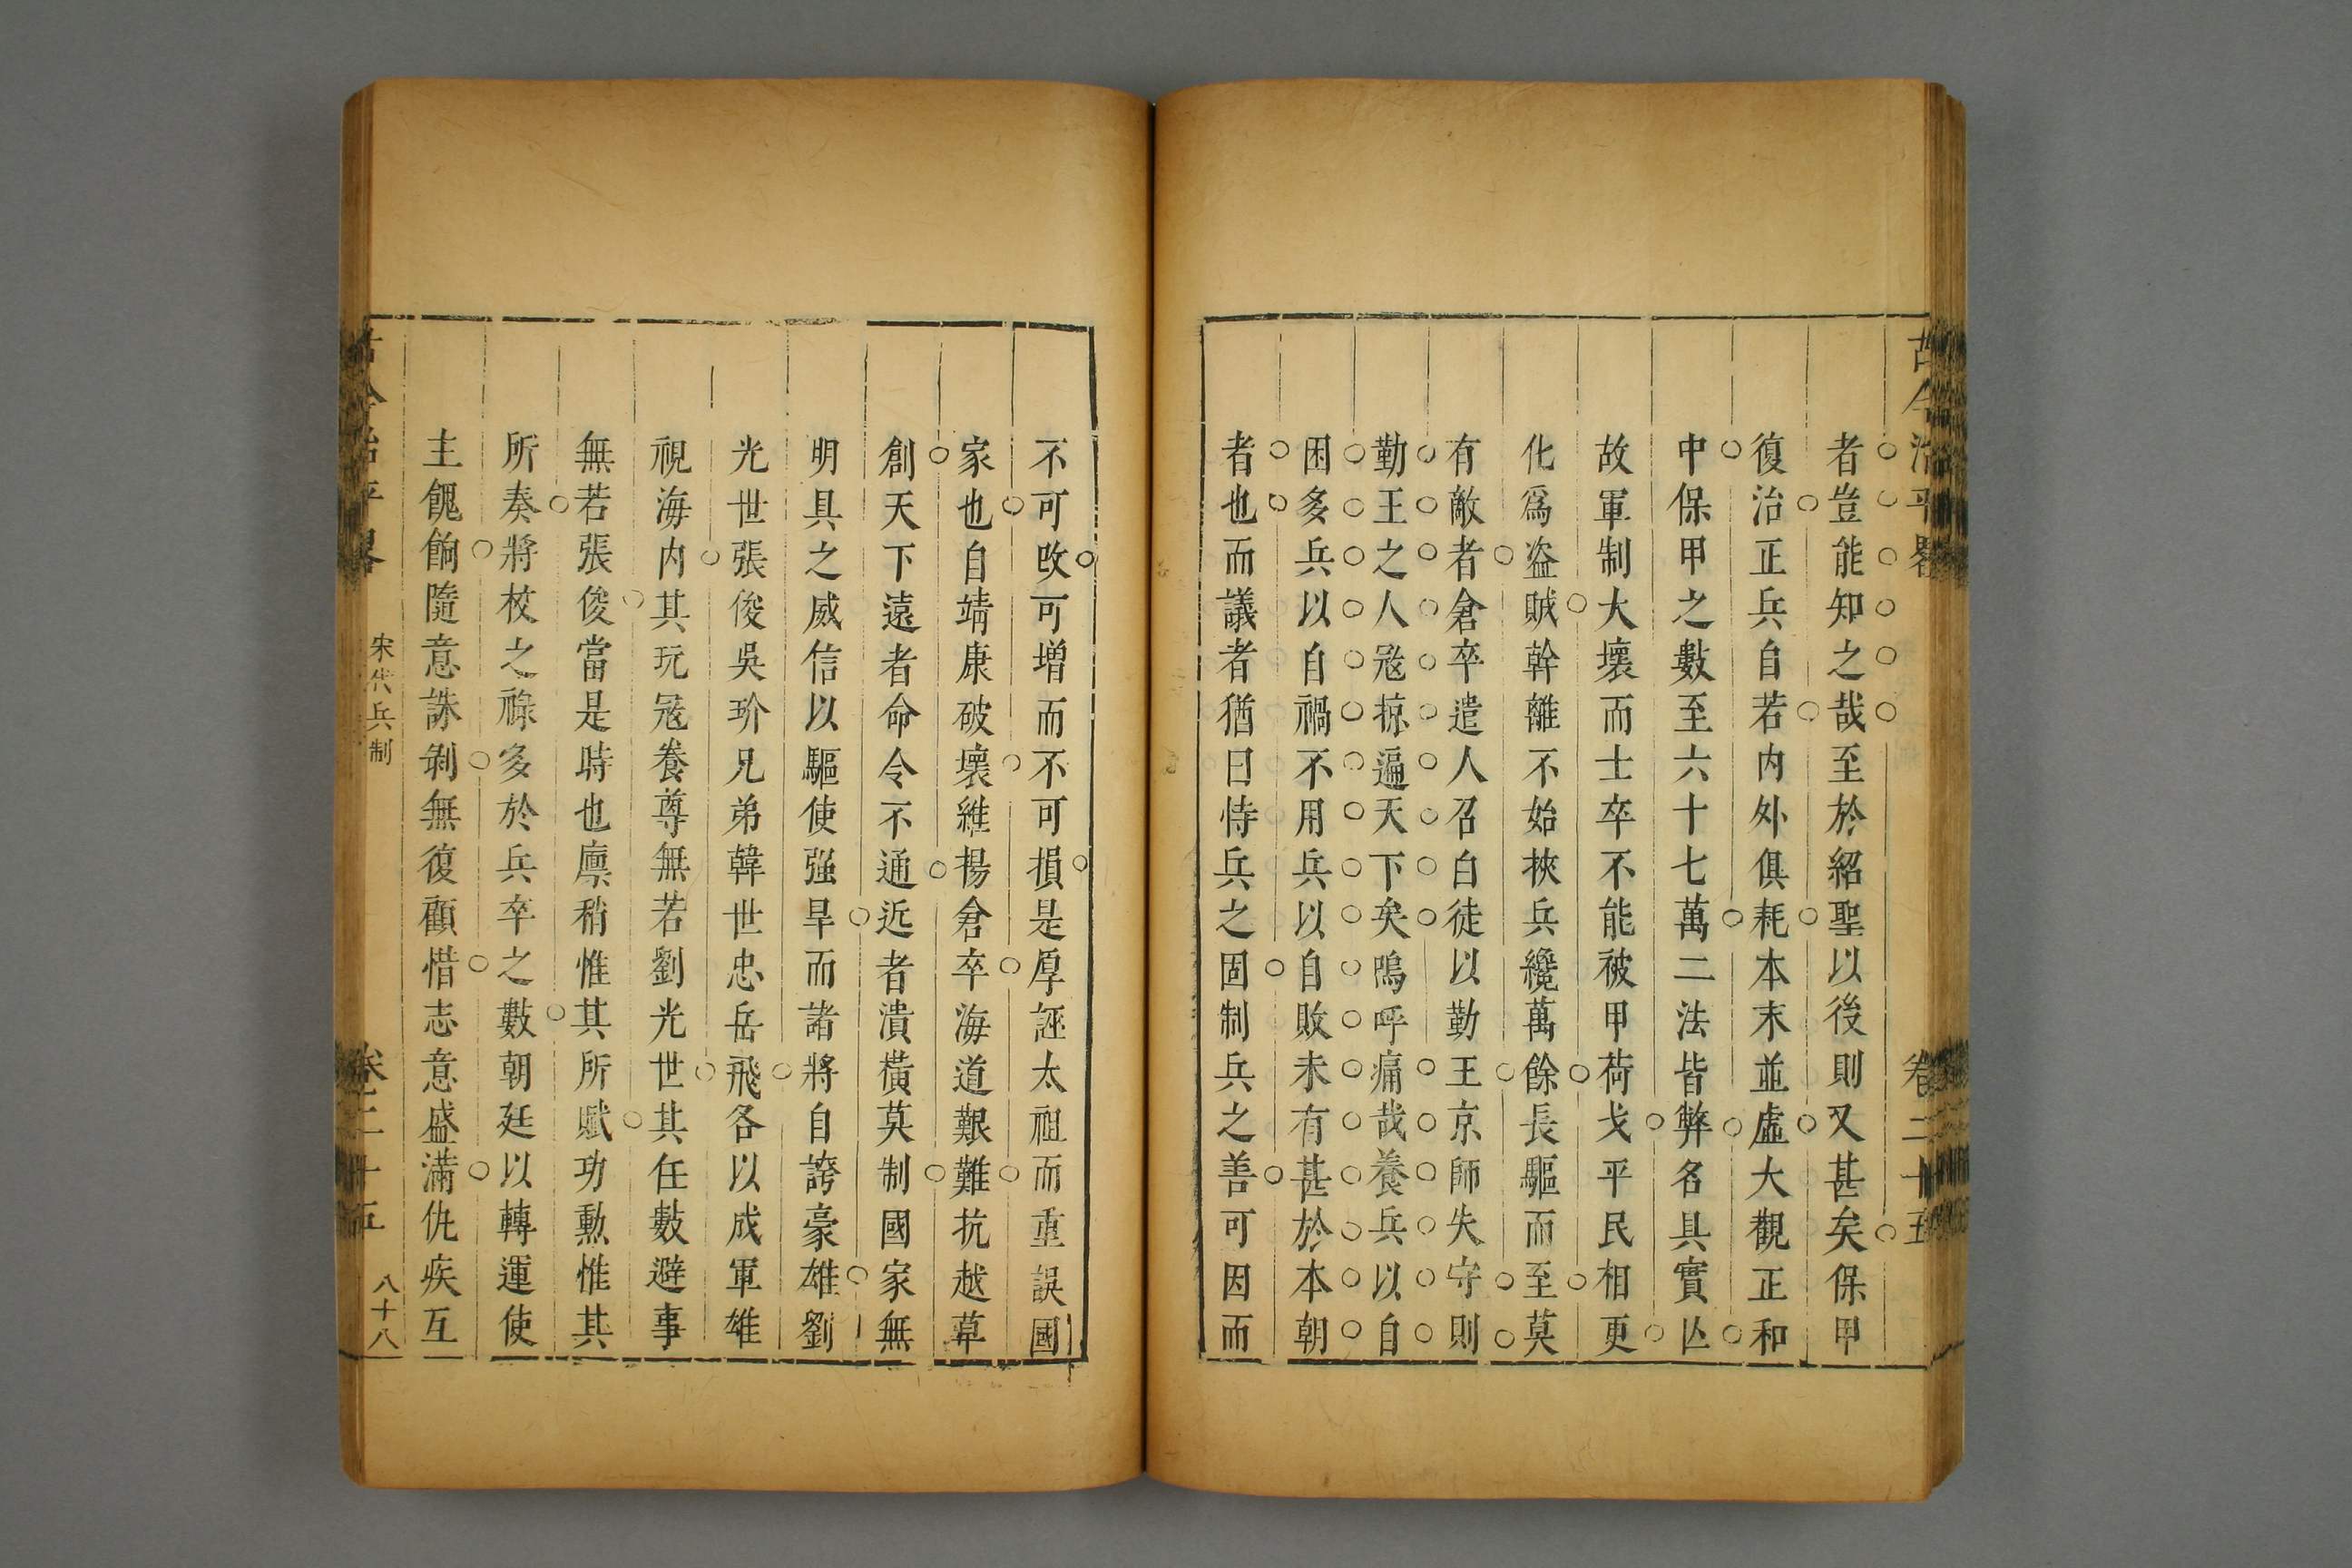 古今治平畧 卷二十五
者豈能知之哉至於紹聖以後則又甚矣保甲
復治正兵自若内外俱耗本末並虛大觀正和
中保甲之數至六十七萬二法皆弊名具實亾
故軍制大壞而士卒不能被甲荷戈平民相更
化爲盜賊幹離不始挾兵纔萬餘長驅而至莫
有敵者倉卒遣人召白徒以勤王京師失守則
勤王之人冦掠遍天下矣嗚呼痛哉養兵以自
困多兵以自禍不用兵以自敗未有甚於本朝
者也而議者猶曰恃兵之固制兵之善可因而
不可改可增而不可損是厚誣太祖而重誤國
家也自靖康破壞維揚倉卒海道艱難杭越草
創天下遠者命令不通近者潰橫莫制國家無
明具之威信以驅使强旱而諸將自誇豪雄劉
光世張俊吳玠兄弟韓世忠岳飛各以成軍雄
視海内其玩冦養尊無若劉光世其任數避事
無若張俊當是時也廩稍惟其所賦功勲惟其
所奏將校之祿多於兵卒之數朝廷以轉運使
主餽餉隨意誅剝無復顧惜志意盛滿仇疾互
古今治平畧 宋代兵制 卷二十五 八十八